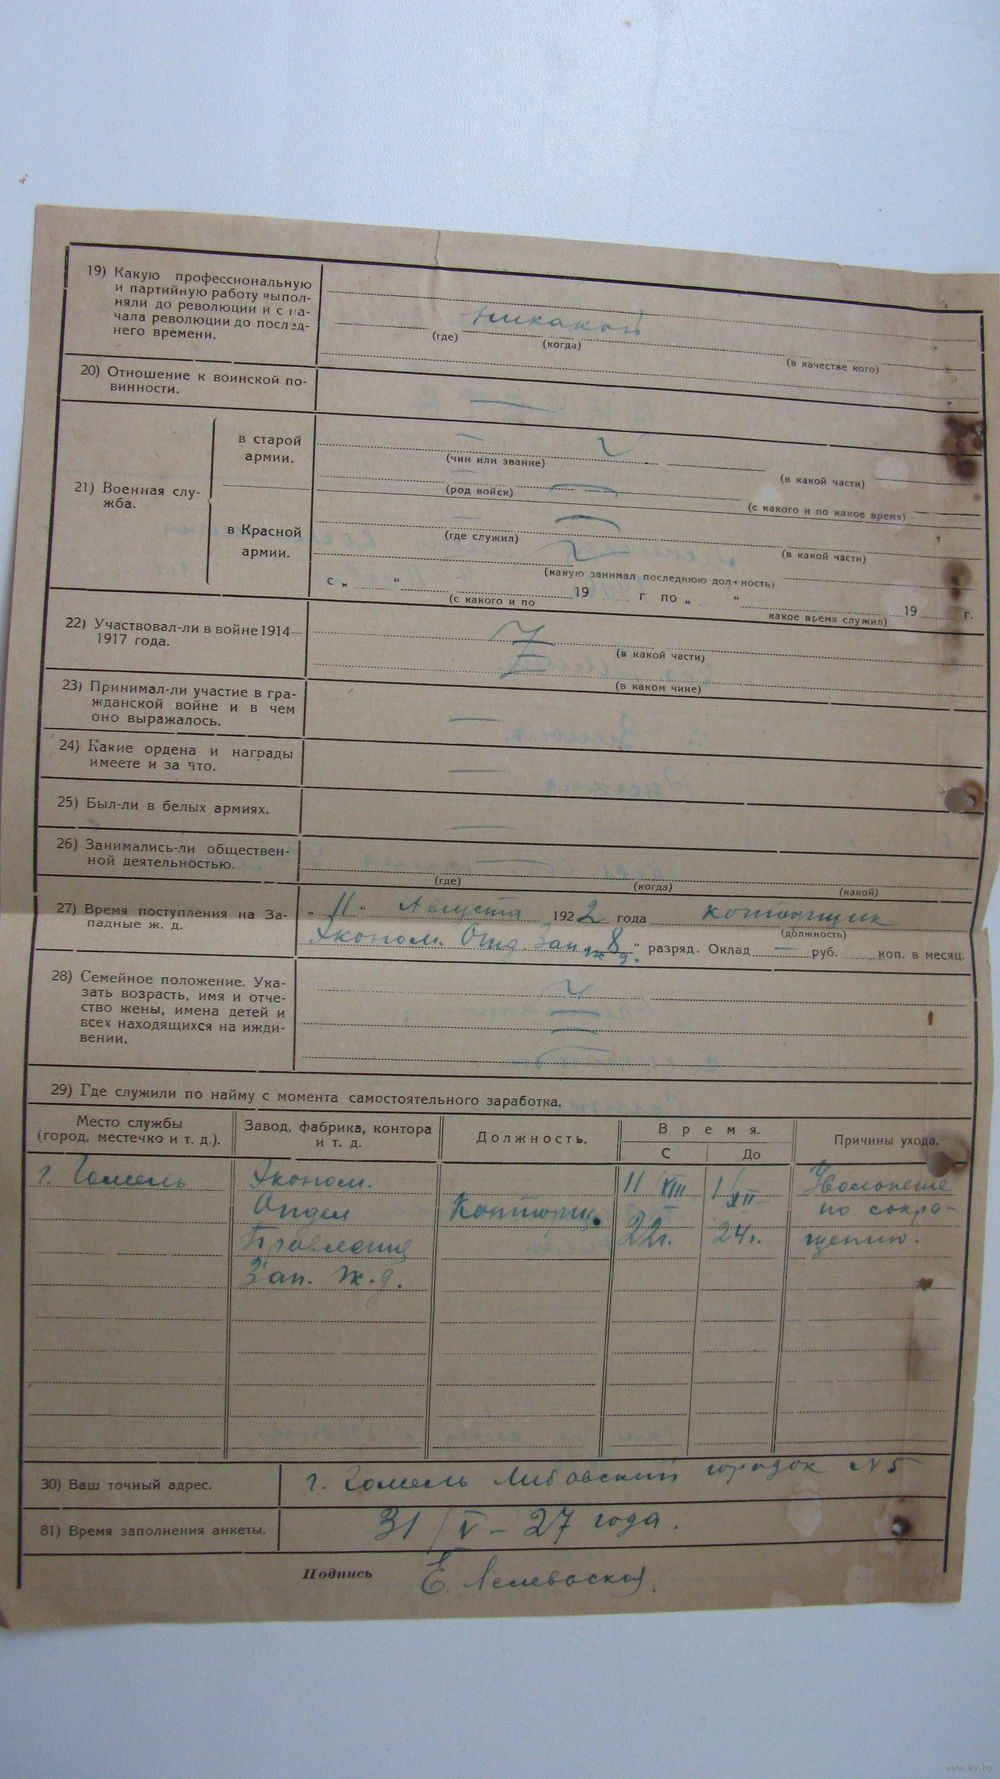 19) Какую профессиональную
и партийную работу выпол-
няли до революции и с на-
чала революции до послед-
него времени.
Никакой
(где)
(когда)
(в качестве кого)
20) Отношение к воинской по-
винности.
—
21) Военная слу-
жба.
в старой
армии.
(чин или звание)
(в какой части)
(род войск)
(с какого и по какое время)
в Красной
армии.
(где служил)
(в какой части)
(какую занимал последнюю должность)
с „ “ 19 г по „ “ 19 г.
(с какого и по
какое время служил)
22) Участвовал-ли в войне 1914—
1917 года.
(в какой части)
(в каком чине)
23) Принимал-ли участие в гра-
жданской войне и в чем
оно выражалось.
—
24) Какие ордена и награды
имеете и за что.
—
25) Был-ли в белых армиях.
—
26) Занимались-ли обществен-
ной деятельностью.
—
(где)
(когда)
(какой)
27) Время поступления на За-
падные ж. д.
„ 11 “ Августа 1922 года конторщик
(должность)
Эконом. Отд. Зап. ж. д. „ 8 “ разряд. Оклад — руб. коп. в месяц.
28) Семейное положение. Ука-
зать возрасть, имя и отче-
ство жены, имена детей и
всех находящихся на ижди-
вении.
29) Где служили по найму с момента самостоятельного заработка.
Место службы
(город, местечко и т. д.).
Завод, фабрика, контора
и т. д.
Должность.
Время.
С
До
Причины ухода.
г. Гомель Эконом. 11/VIII 1/XII Увольнение
Отдел Конторщ. по сокра-
Правления 22г. 24г. щению.
Зап. ж.д.
30) Ваш точный адрес.
г. Гомель Либавский городок N 5
31) Время заполнения анкеты.
31/V – 27 года.
Подпись
Е.
www.ay.by